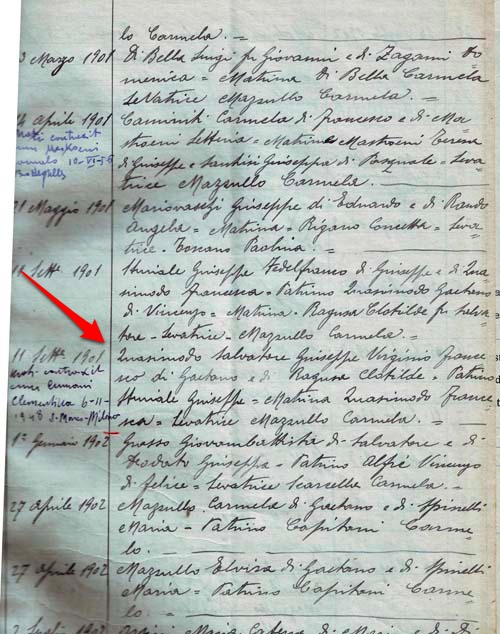 lo Carmela. =
3 Marzo 1901 Di Bella Luigi fu Giovanni e di Zagami Do
menica = Matrina Di Bella Carmela
Levatrice Mazzullo Carmela. =
aprile 1901 Carmela di Francesco e di Ma
stroeni Letteria = Matrina Mastroeni Teresa
di Giuseppe e Giuseppa di Pasquale = Leva
trice Mazzullo Carmela.
21 Maggio 1901 Giuseppe di Eduardo e di Rando
Angela = Matrina = Rizzano Concetta = Leva
trice. Toscano Paolina.
11 Sett.e 1901 Sturiale Giuseppe Fedelfranco di Giuseppe e di Qua
simodo Francesca = Patrino Quasimodo Gaetano
di Vincenzo = Matrina. Ragusa Clotilde fu Salva
tore = Levatrice = Mazzullo Carmela =
11 Sett.e 1901 Quasimodo Salvatore Giuseppe Virginio France
sco di Gaetano e di Ragusa Clotilde. Patrino
Sturiale Giuseppe = Matrina Quasimodo France
sca = Levatrice Mazzullo Carmela. =
contraxit
Cumani
6-11-
1948 S. Marco-Milano
1° Gennaio 1902 Grasso Giovambattista di Salvatore e di
Teodato Giuseppa = Patrino Alfrè Vincenzo
di Felice = Levatrice Scarcella Carmela. =
27 aprile 1902 Mazzullo Carmela di Gaetano e di Spinelli
Maria = Patrino Capitani Carme
lo.
27 aprile 1902 Mazzullo Elvira di Gaetano e di Spinelli
Maria = Patrino Capitani Carme
lo. =